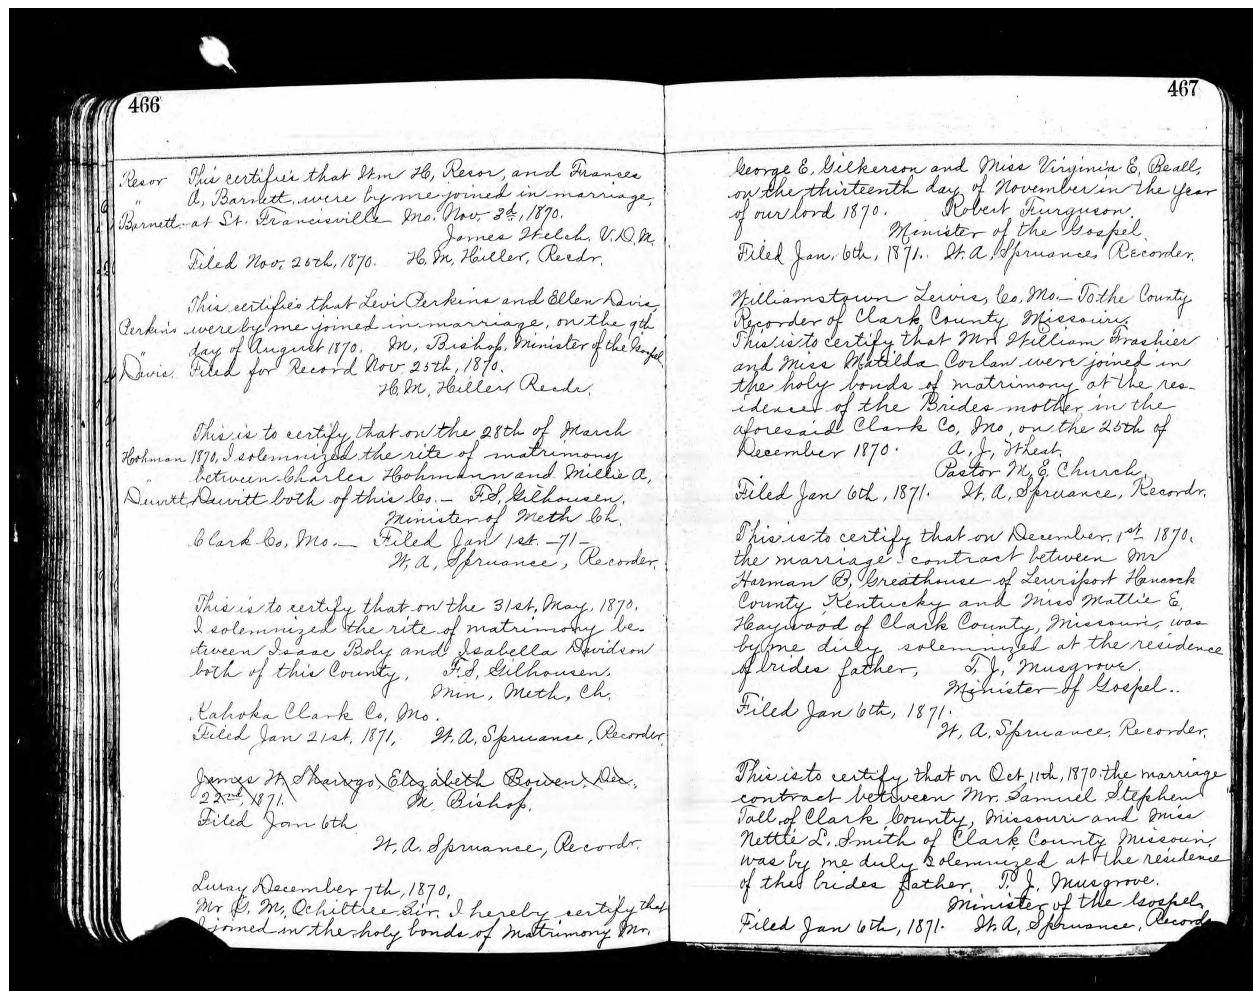 466
Resor This certifies that Wm H, Resor, and Frances
" A, Barnett, were by me joined in marriage,
Barnett. at St. Francisville Mo. Nov. 3d, 1870.
James Welch. V.D.M.
Filed Nov, 25th, 1870. H. M, Hiller, Recdr.
This certifies that Levi Perkins and Ellen Davis,
Perkins were by me joined in marriage, on the 9th
" day of August 1870. M, Bishop, Minister of the Gospel
Davis. Filed for Record Nov 25th, 1870.
H. M, Hiller, Recdr.
This is to certify that on the 28th of March
Hohman 1870, I solemnized the rite of matrimony
between Charles Hohmann and Millie A,
" Dewitt, Dewitt both of this Co. — F. S, Gilhousen,
Minister of Meth Ch.
Clark Co, Mo. — Filed Jan 1st. -71-
W. A, Spruance, Recorder.
This is to certify that on the 31st, May, 1870.
I solemnized the rite of matrimony be-
tween Isaac Boly and Isabella Davidson
both of this County. F. S, Gilhousen.
Min, Meth, Ch.
Kahoka Clark Co, Mo.
Filed Jan 21st, 1871, W. A, Spruance, Recorder,
James W, Elizabeth Bowen, Dec,
22nd, 1871. M. Bishop.
Filed Jan 6th
W. A. Spruance, Recordr.
Luray December 7th, 1870,
Mr M, Ochiltree Sir. I hereby certify that
I joined in the holy bonds of Matrimony Mr.
467
George E, Gilkerson and Miss Virginia E, Beall,
on the thirteenth day of November in the Year
of our lord 1870. Robert Furguson.
Minister of the Gospel.
Filed Jan, 6th, 1871. W. A, Spruance, Recorder.
Williamstown Lewis, Co, Mo.— To the County
Recorder of Clark County Missouri.
This is to certify that Mr William Frashier
and Miss Matilda Corlan were joined in
the holy bonds of matrimony at the res-
idence of the Brides mother in the
aforesaid Clark Co, Mo, on the 25th of
December 1870. A, J, Wheat,
Pastor M, E, Church,
Filed Jan 6th, 1871. W. A, Spruance, Recordr.
This is to certify that on December, 1st 1870,
the marriage contract between Mr
Harman B, Greathouse of Lewisport Hancock
County Kentucky and Miss Mattie E,
Haywood of Clark County, Missouri, was
by me duly solemnized at the residence
of brides father, T. J, Musgrove.
Minister of Gospel..
Filed Jan 6th, 1871.
W, A, Spruance, Recorder.
This is to certify that on Oct 11th, 1870 the marriage
contract between Mr. Samuel Stephen
Tall, of Clark County, Missouri and Miss
Nettie L. Smith of Clark County Missouri,
was by me duly solemnized at the residence
of the brides father. T. J, Musgrove.
Minister of the Gospel,
Filed Jan 6th, 1871. W. A, Spruance,